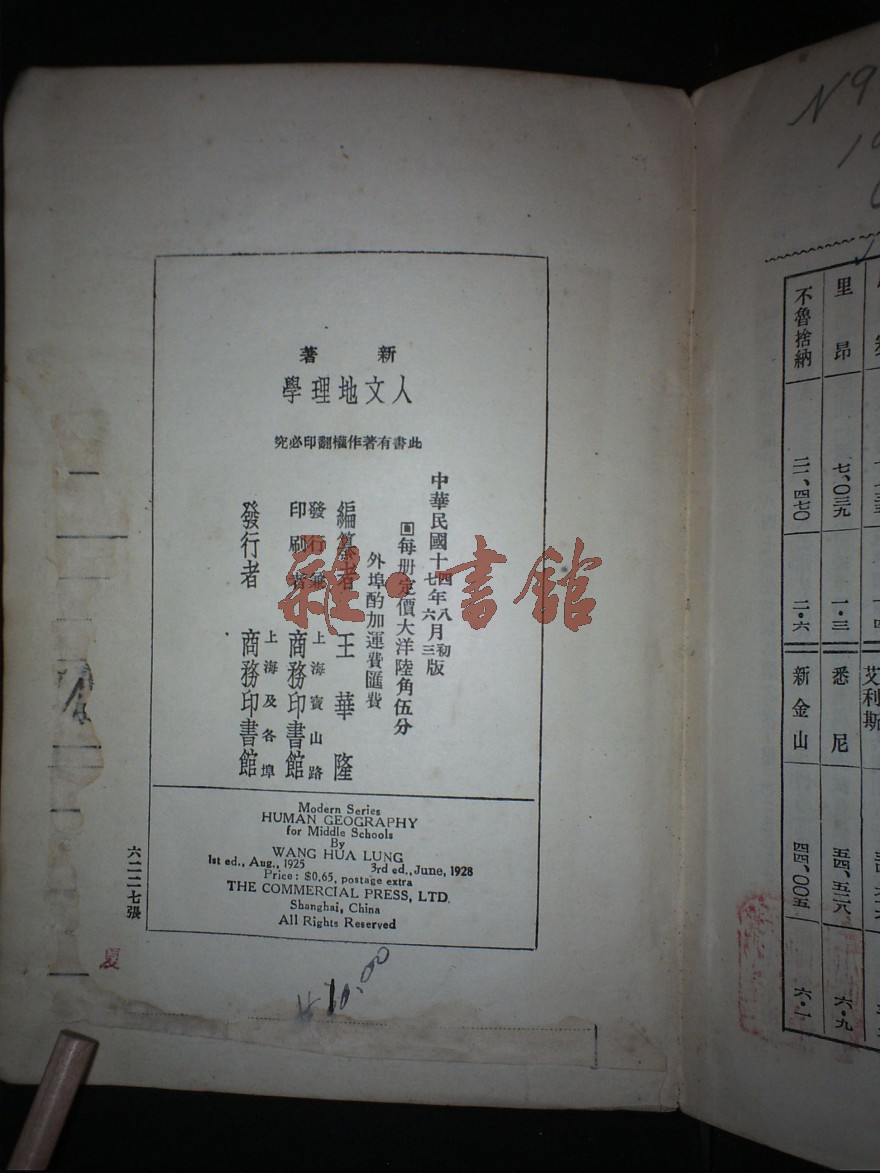 新著
人文地理學
此書有著作權翻印必究
中華民國十四年八月初版
十七年六月三版
每册定價大洋陸角伍分
外埠酌加運費匯費
編纂者 王華隆
發行兼印刷者 上海寶山路 商務印書館
發行者 上海及各埠 商務印書館
Modern Series
HUMAN GEOGRAPHY
for Middle Schools
By
WANG HUA LUNG
1st ed., Aug., 1925 3rd ed., June, 1928
Price: $0.65, postage extra
THE COMMERCIAL PRESS, LTD.
Shanghai, China
All Rights Reserved
六二二七張
夏
雜·書館
里昂 七、〇三九 一·三 悉尼 五四、五二八 六·九
不魯捨納 二一、四七〇 二·六 新金山 四四、〇〇五 六·一
艾利斯